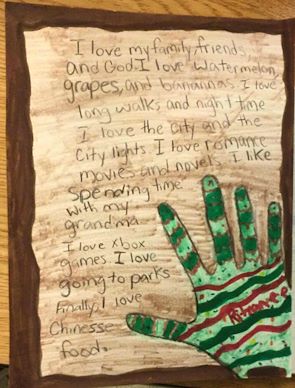 I love my family, friends,
and God. I love watermelon,
grapes, and banannas. I love
long walks and night time
I love the city and the
City lights. I love romance
movies and novels. I like
spending time
with my
grandma.
I love xbox
games. I love
going to parks
Finally, I love
Chinesse
food.